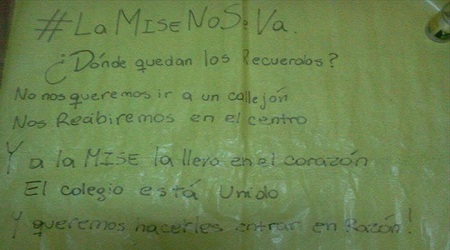 #LaMiseNoSeVa.
¿Dónde quedan los Recuerdos?
No nos queremos ir a un callejón
Nos Reabiremos en el centro
Y a la MISE la llevo en el corazón
El colegio está Unido
Y queremos hacerles entrar en Razón!